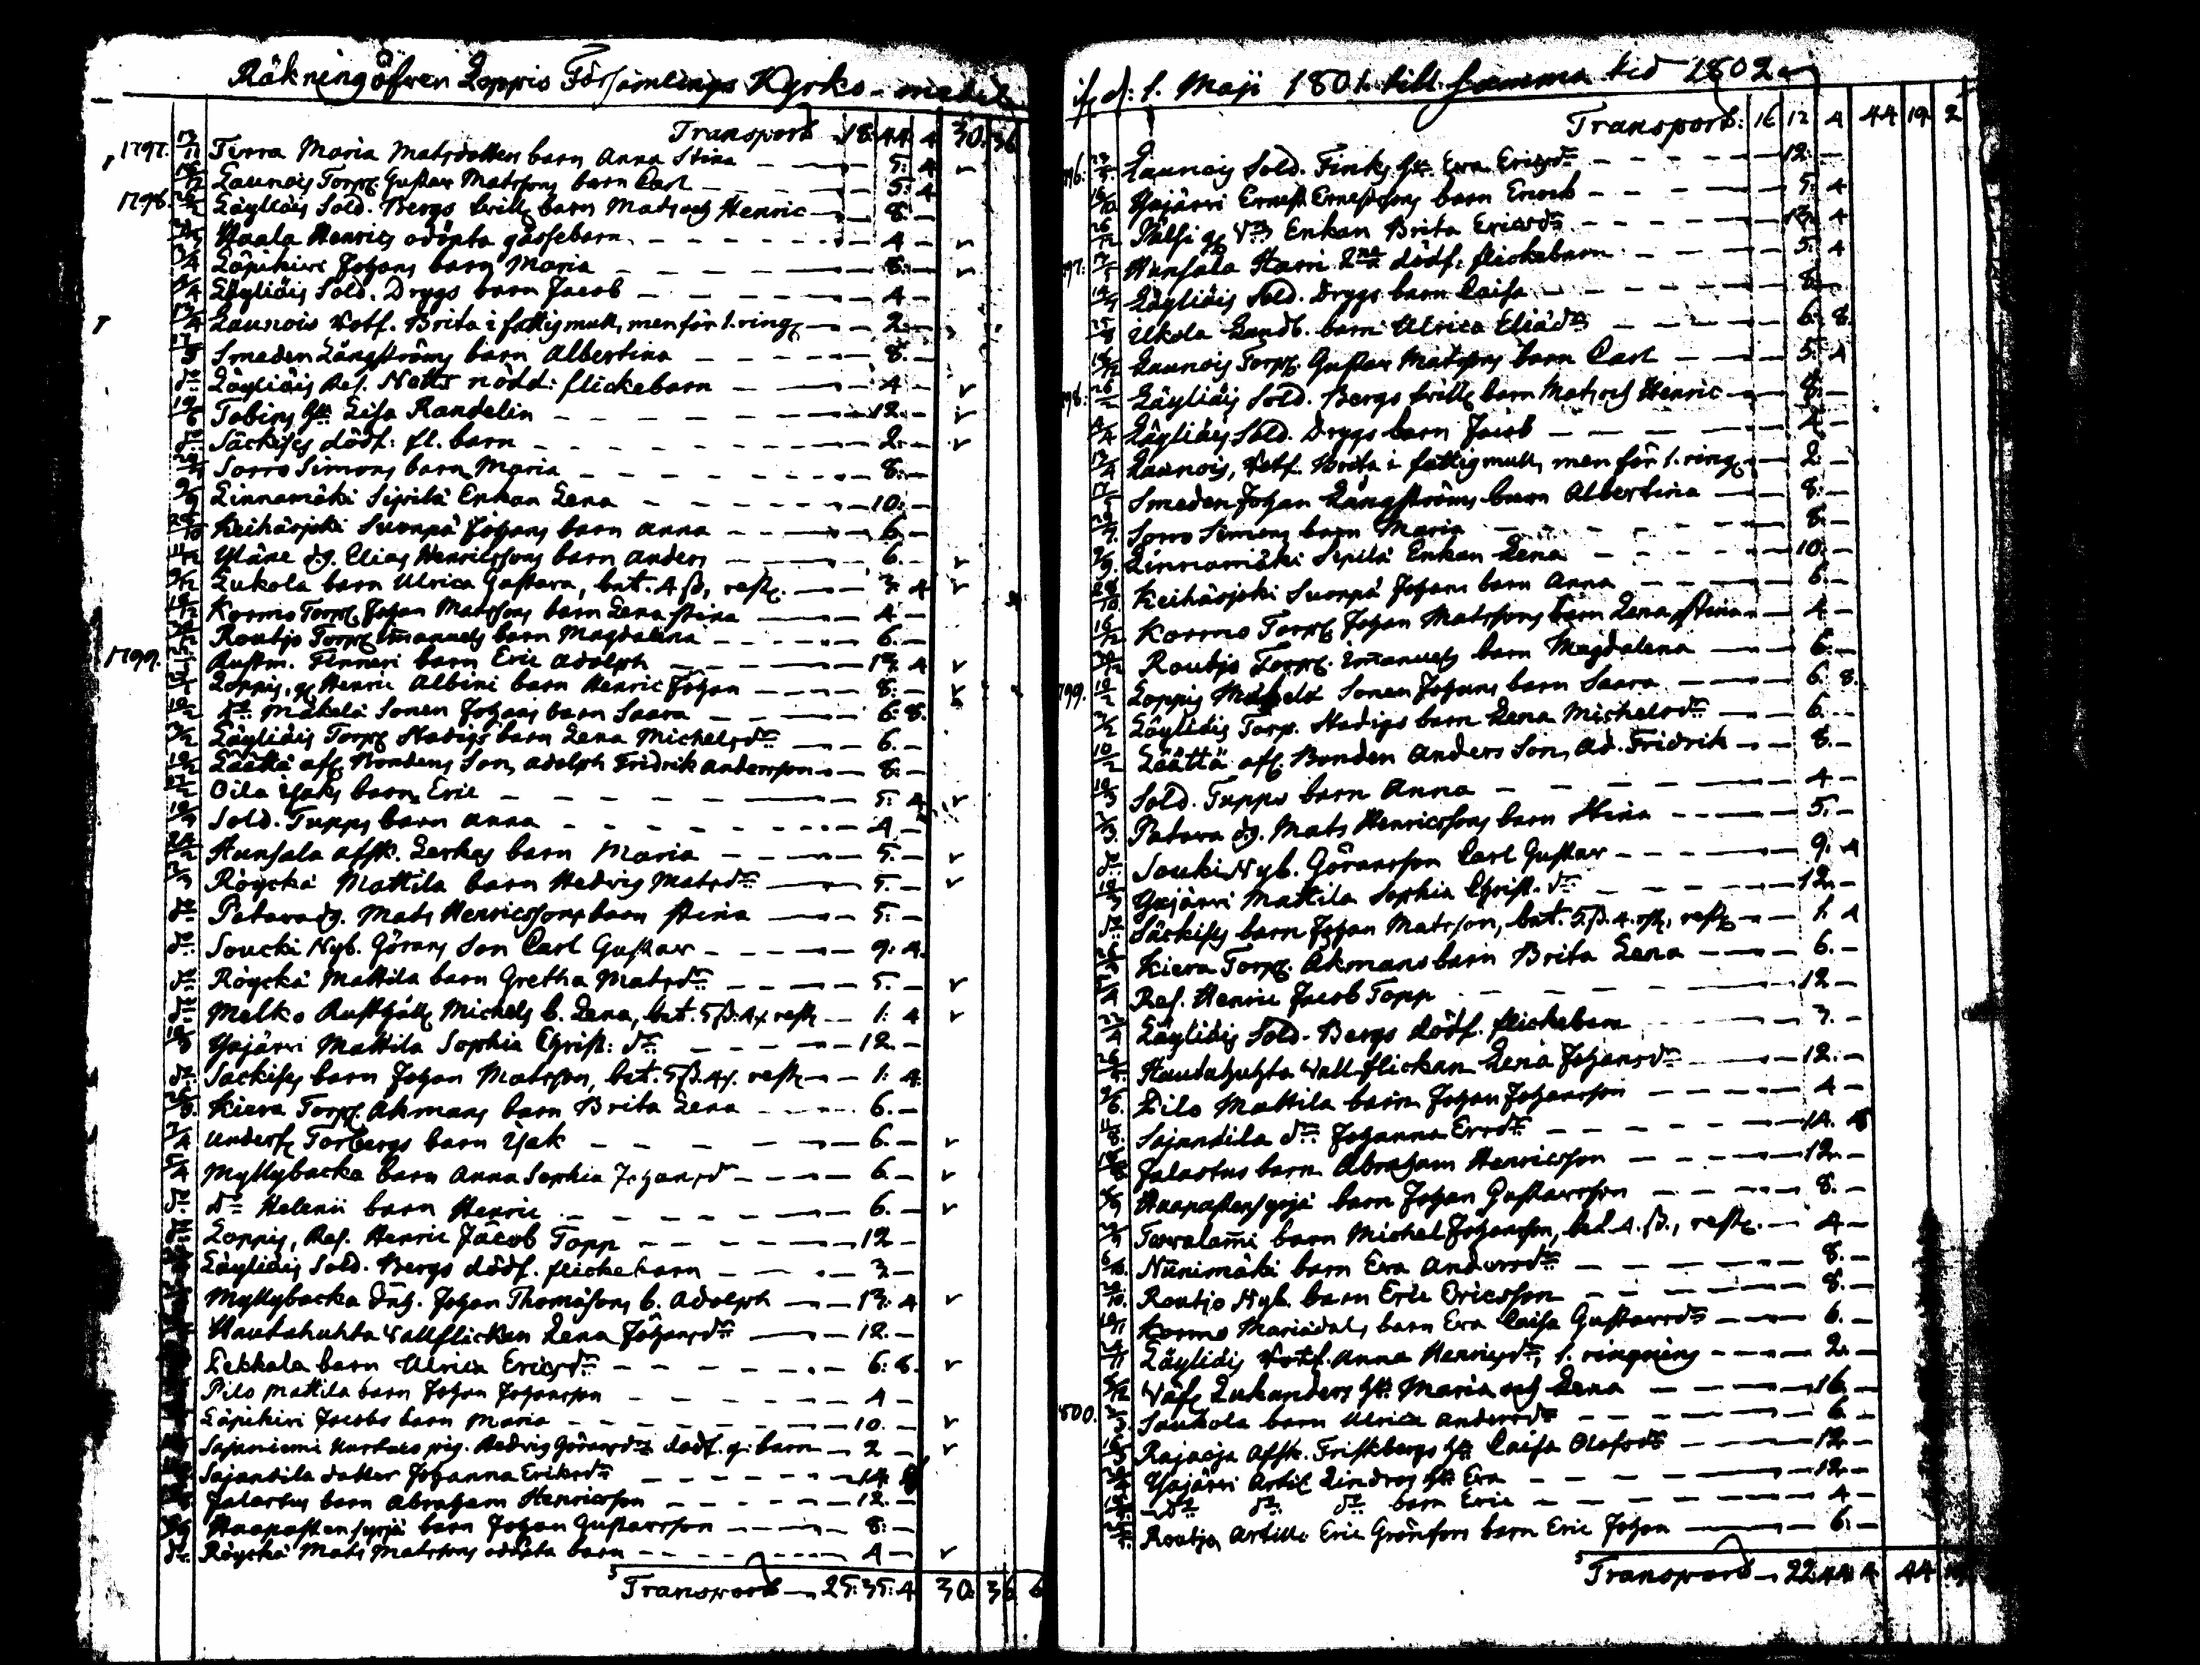 Räkning öfver Loppis Församlings Kyrko-medel
Transport 18: 44 4 30. 36
1797. 13/11 Turra Maria Matsdotters barn Anna Stina — 5: 4
Launois Torp. Gustav Matssons barn Carl — 5: 4
1798. Läyliäis Sold. Bergs tvill. barn Mats och Henric — 8: —
Haala Henrics odöpta gossebarn — 4 —
Läpikivi Johans barn Maria — 8: —
Läyliäis Sold. Drygs barn Jacob — 4 —
Launois Rotf. Brita i fattigmull, men för 1. ring. — 2: —
Smeden Långströms barn Albertina — 8: —
Läyliäis Ref. Netts nödd: flickebarn — 4: —
Tobins Hu. Lisa Randelin — 12: —
Säckises dödf: fl. barn — 2: —
Sorro Simons barn Maria — 8: —
Linnamäki Sipilä Enkan Lena — 10: —
Keihäsjoki Suonpä Johans barn Anna — 6: —
Yläne dg. Elias Henricssons barn Anders — 6. —
Lukola barn Ulrica Gustava, bet. 4 ß, rest. — 3: 4
Kormo Torp. Johan Matssons barn Lena Stina — 4 —
Routjo Torp. Emanuels barn Magdalena — 6. —
1799. Rustm. Finneri barn Eric Adolph — 13: 4
Loppis, Henric Albini barn Henric Johan — 8: —
do. Mäkelä Sonen Johans barn Saara — 6: 8.
Läyliäis Torp. Stadigs barn Lena Michelsdr. — 6. —
Läättä afl. Bondens Son, Adolph Fridrik Andersson — 8: —
Oila Isaks barn Eric — 5. 4
Sold. Tupps barn Anna — 4 —
Hunsala afsk. Lerkes barn Maria — 5. —
Röyckä Mattila barn Hedvig Matsdr. — 5. —
do. Patova dg. Mats Henricssons barn Stina — 5. —
do. Soucki Nyb. Görans Son Carl Gustav — 9: 4.
do. Röyckä Mattila barn Gretha Matsdr. — 5. —
do. Melko Rusthåll. Michels b. Lena, bet. 5 ß. 4 r. rest. — 1: 4
Yajärvi Mattila Sophia Christ: dr. — 12. —
do. Säckises barn Johan Matsson, bet. 5 ß. 4 r. rest. — 1: 4
Kiera Torp. Akmans barn Brita Lena — 6. —
Underof. Torbergs barn Isak — 6. —
Myllybacka barn Anna Sophia Johansdr — 6 —
do. do. Helenii barn Henric — 6. —
do. Loppis, Ref. Henric Jacob Topp — 12 —
Läyliäis Sold. Bergs dödf. flickebarn — 3 —
Myllybacka Johan Thomassons b. Adolph — 13: 4
Hautahuhta Vallflickan Lena Johansdr. — 12. —
Lekkala barn Ulrica Ericsdr. — 6: 8.
Pilo Mattila barn Johan Johansson — 4 —
Läpikivi Jacobs barn Maria — 10. —
Sajaniemi Kurtens pig. Hedvig Göransdr. dödf. g: barn — 2 —
Sajandila dotter Johanna Eriksdr. — 14. 8
Jalastus barn Abraham Henricsson — 12. —
Haapastensyrjä barn Johan Gustavsson — 8: —
do. Röyckä Mats Matssons odöpta barn — 4 —
Transport — 25: 35: 4 30. 36 6
if. d: 1. Maji 1801. till samma tid 1802.
Transport: 16 12 4 44 19. 2
796. Launois Sold. Finks Hu. Eva Ericsdr. — 12: —
Yajärvi Ernst Ernstssons barn Enock — 5: 4
Pälsi Enkan Brita Ericsdr. — 13: 4
797. Hunsala Harri 2ne dödf: flickebarn — 5: 4
Läyliäis Sold. Drygs barn Caisa — 8: —
Ukola Landb. barn Ulrica Eliædr. — 6: 8.
Launois Torp. Gustav Matssons barn Carl — 5: 4
798. Läyliäis Sold. Bergs tvill. barn Mats och Henric — 8: —
Läyliäis Sold. Drygs barn Jacob — 4 —
Launois, Rotf. Brita i fattigmull, men för 1. ring. — 2: —
Smeden Johan Långströms barn Albertina — 8: —
Sorro Simons barn Maria — 8: —
Linnamäki Sipilä Enkan Lena — 10: —
Keihäsjoki Suonpä Johans barn Anna — 6: —
Kormo Torp. Johan Matssons barn Lena Stina — 4 —
Routjo Torp. Emanuels barn Magdalena — 6: —
799. Loppis Mäkelä Sonen Johans barn Saara — 6: 8.
Läyliäis Torp. Stadigs barn Lena Michelsdr. — 6. —
Läättä afl. Bonden Anders Son, Ad. Fridrik — 8. —
Sold. Tupps barn Anna — 4 —
Patova dg. Mats Henricssons barn Stina — 5. —
do. Souki Nyb. Göransson Carl Gustav — 9. 4
Yajärvi Mattila Sophia Christ. dr. — 12. —
do. Säckises barn Johan Matsson, bet. 5 ß. 4. rst, rest. — 1. 4
Kiera Torp. Akmans barn Brita Lena — 6. —
Ref. Henric Jacob Topp — 12 —
Läyliäis Sold. Bergs dödf. flickebarn — 3. —
Hautahuhta Vallflickan Lena Johansdr. — 12. —
Pilo Mattila barn Johan Johansson — 4 —
Sajandila dr. Johanna Ersdr. — 14. 8
Jalastus barn Abraham Henricsson — 12. —
Haapastensyrjä barn Johan Gustavsson — 8. —
Torvalammi barn Michel Johansson, bet. 4. ß., rest. — 4 —
Niinimäki barn Eva Andersdr. — 8. —
Routjo Nyb. barn Eric Ericsson — 8. —
Kormo Mariædals barn Eva Caisa Gustavsdr. — 6. —
Läyliäis Rotf. Anna Henricsdr., 1. ringning — 2. —
Väf. Lukanders Hu. Maria och Lena — 16. —
800. Saukola barn Ulrica Andersdr. — 6. —
Rajaoja Afsk. Friskbergs Hu. Caisa Olofsdr. — 12. —
Yajärvi Artil. Lindros Hu. Eva — 12. —
do. do. do. barn Eric — 4 —
Routjo Artill. Eric Grönfors barn Eric Johan — 6: —
Transport — 22. 44. 4. 44 19.